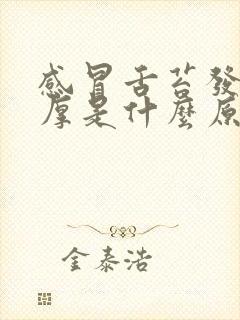 感冒舌苔發
厚是什麼原
金泰浩